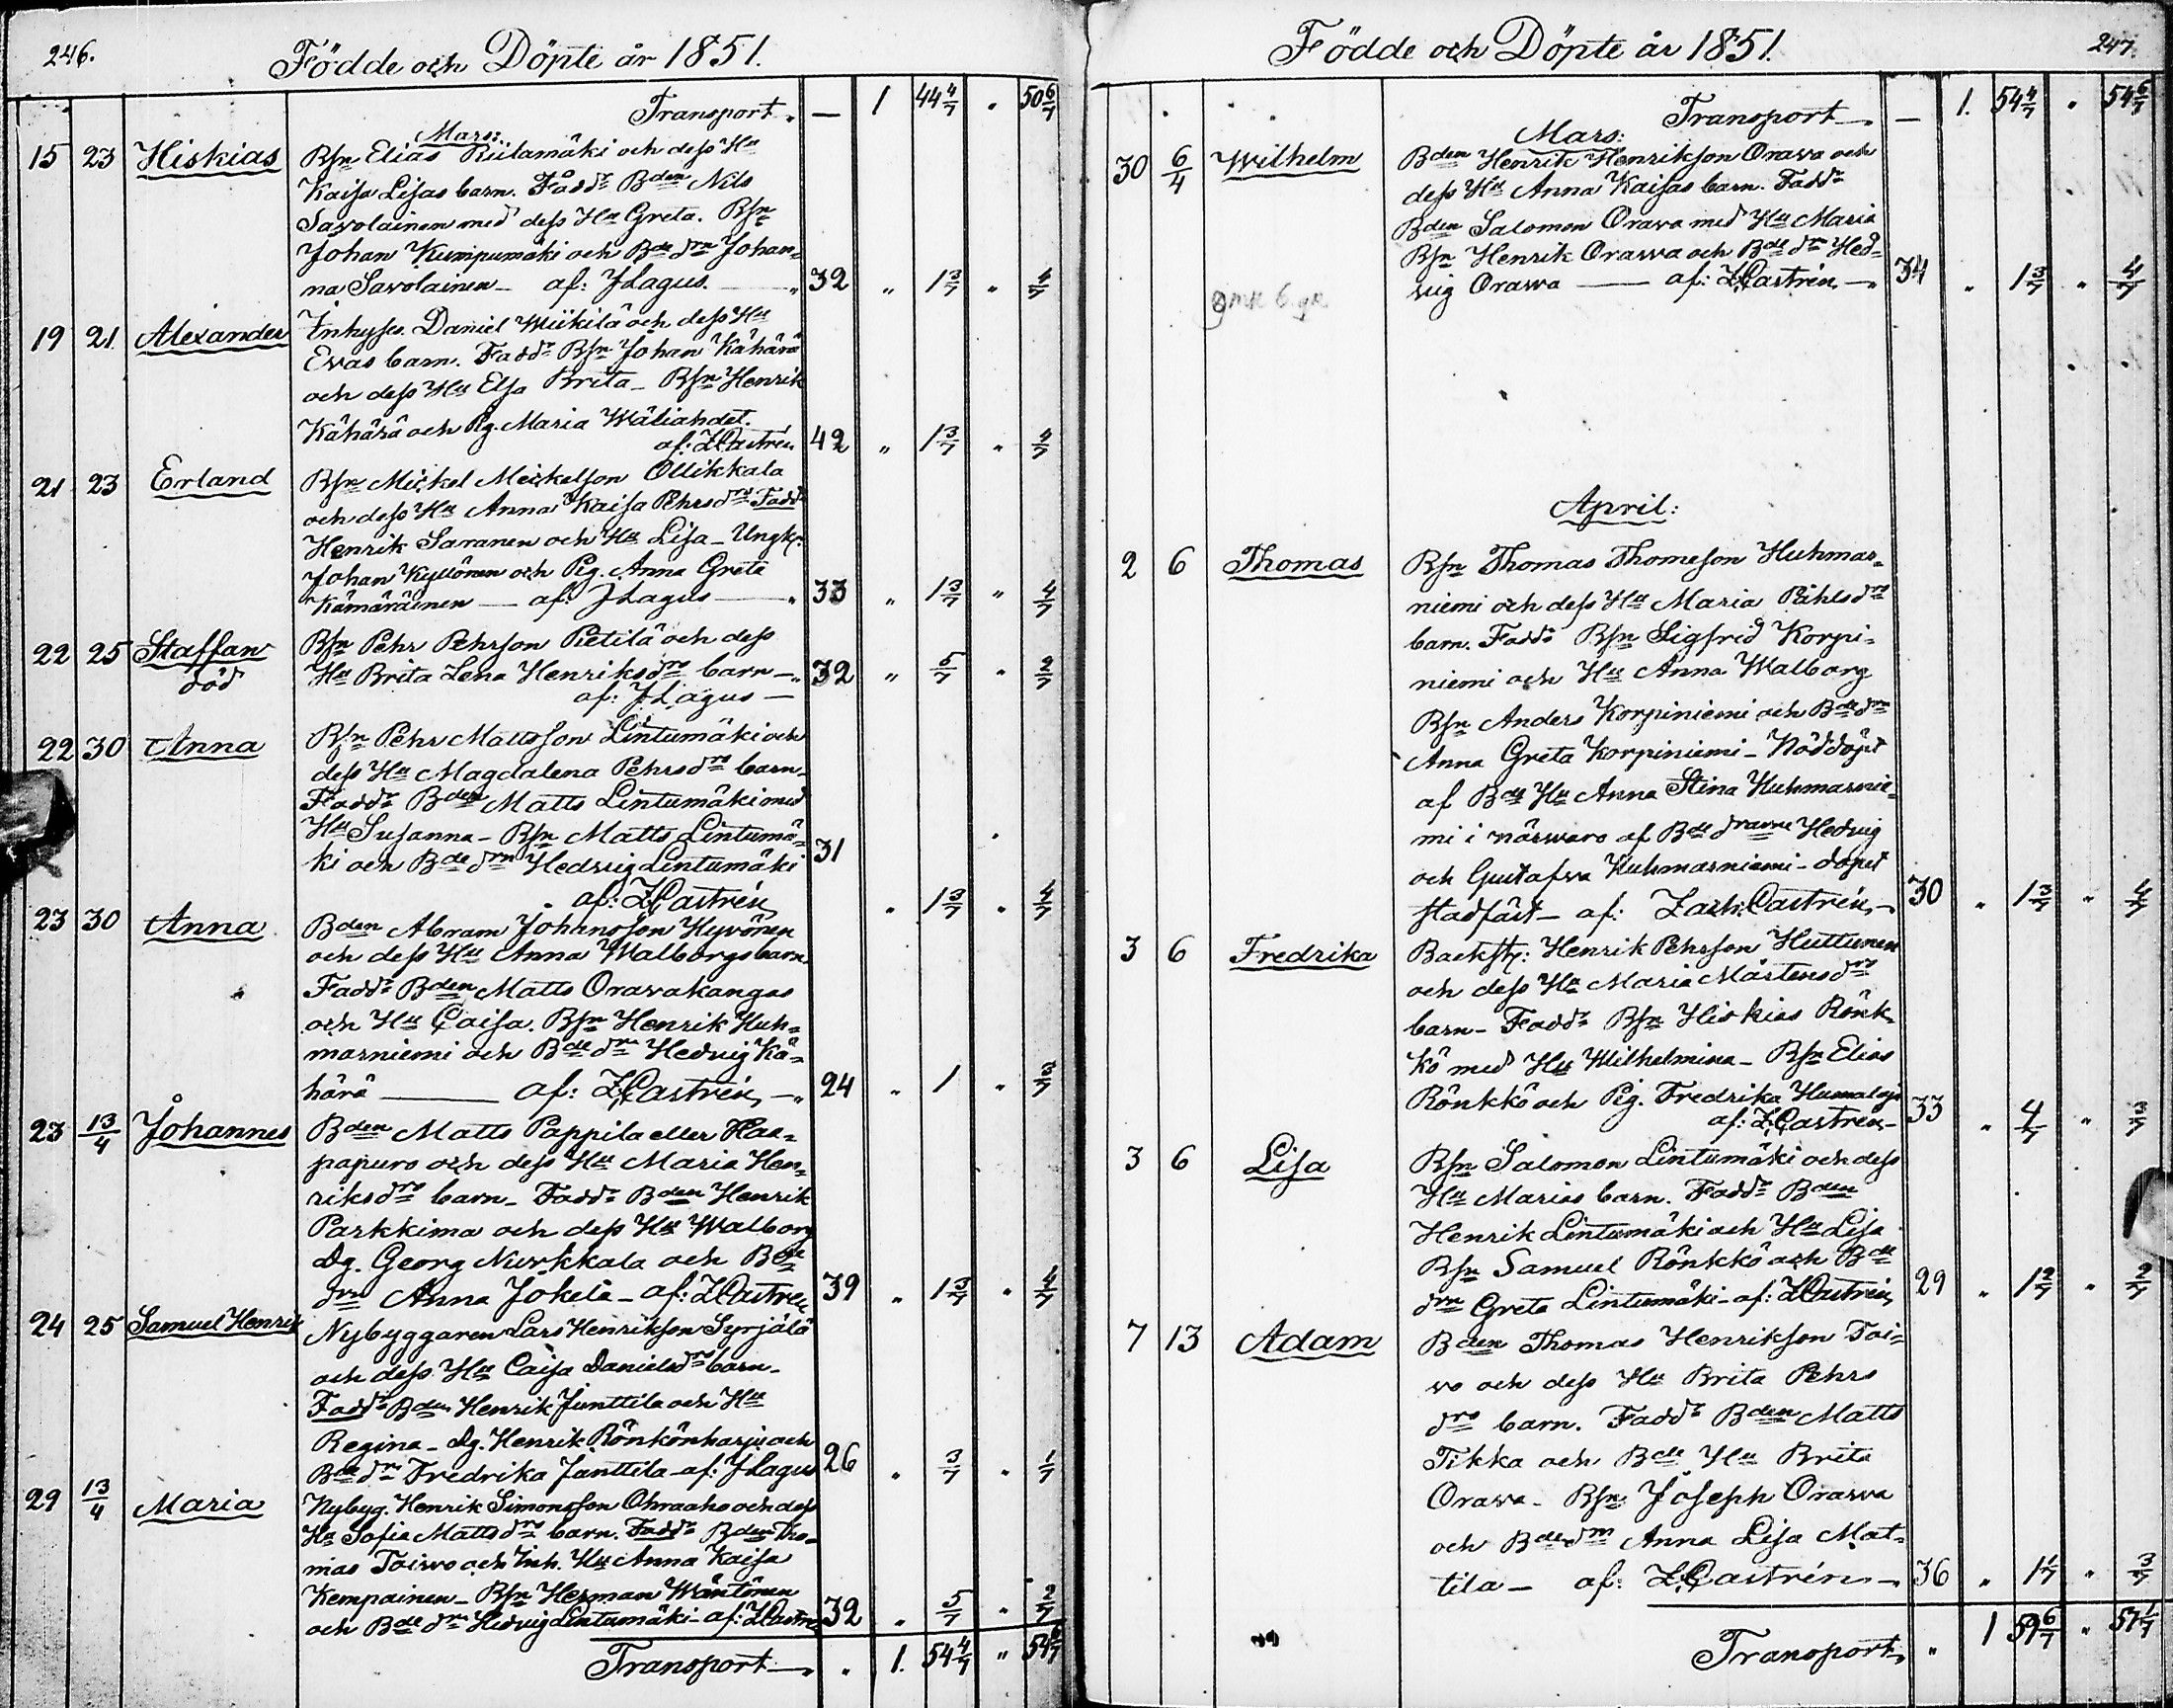 246.
Födde och Döpte år 1851.
Transport. — 1 44 4/7 " 50 6/7
Mars:
15 23 Hiskias Bsn Elias Riilamäki och dess Hu
Kaisa Lisas barn. Faddr Bden Nils
Savolainen med dess Hu Greta. Bsn
Johan Kumpumäki och Bde dm Johan-
na Savolainen — af: J Lagus. — " 32 " 1 3/7 " 4/7
19 21. Alexander Inhyses. Daniel Wiikilä och dess Hu
Evas barn. Faddr Bsn Johan Kähärä
och dess Hu Elsa Brita — Bsn Henrik
Kähärä och Pig. Maria Wäliahdet.
af: Z Castrén 42 " 1 3/7 " 4/7
21 23 Erland Bsn Mickel Mickelson Ollikkala
och dess Hu Anna Kaisa Pehrsdrs Faddr
Henrik Saranen och Hu Lisa — Ungk.
Johan Kyllönen och Pig. Anna Greta
Kämäräinen — af: J Lagus — " 33 " 1 3/7 " 4/7
22 25 Staffan Bsn Pehr Pehrson Pietilä och dess
död Hu Brita Lena Henriksdrs barn — " 32 " 5/7 " 2/7
af: J Lagus —
22 30 Anna Bsn Pehr Mattsson Lintumäki och
dess Hu Magdalena Pehrsdrs barn —
Faddr Bden Matts Lintumäki med
Hu Susanna — Bsn Matts Lintumä-
ki och Bde dm Hedvig Lintumäki 31
af: Z Castrén " 1 3/7 " 4/7
23 30 Anna Bden Abram Johansson Hyvönen
och dess Hu Anna Walborgs barn.
Faddr Bden Matts Oravakangas
och Hu Caisa. Bsn Henrik Huh-
marniemi och Bde dm Hedvig Kä-
härä — af: Z Castrén — " 24 " 1 " 3/7
23 13/4 Johannes Bden Matts Pappila eller Haa-
papuro och dess Hu Maria Hen-
riksdrs barn — Faddr Bden Henrik
Parkkima och dess Hu Walborg
Dg. Georg Nurkkala och Bde
dm Anna Jokela — af: Z Castrén 39 " 1 3/7 " 4/7
24 25 Samuel Henrik Nybyggaren Lars Henrikson Syrjälä
och dess Hu Caisa Danielsdrs barn —
Faddr Bden Henrik Junttila och Hu
Regina — Dg. Henrik Rönkönharju och
Bde dm Fredrika Junttila — af: J Lagus 26 " 3/7 " 1/7
29 13/4 Maria Nybyg. Henrik Simonsson Ohraaho och dess
Hu Sofia Mattsdrs barn. Faddr Bden Tho-
mas Toivo och Inh. Hu Anna Kaisa
Kempainen — Bsn Herman Wäntönen
och Bde dm Hedvig Lintumäki — af: Z Castrén 32 " 5/7 " 2/7
Transport — " 1. 54 4/7 " 54 6/7
Födde och Döpte år 1851.
247.
Transport — — 1. 54 4/7 " 54 6/7
Mars:
30 6/4 Wilhelm Bden Henrik Henrikson Orava och
dess Hu Anna Kaisas barn. Faddr
Bden Salomon Orava med Hu Maria
Bsn Henrik Orawa och Bde dm Hed-
vig Orawa — af: Z Castrén — " 34 " 1 3/7 " 4/7
April:
2 6 Thomas Bsn Thomas Thomeson Huhmar-
niemi och dess Hu Maria Påhlsdrs
barn. Faddr Bsn Sigfrid Korpi-
niemi och Hu Anna Walborg
Bsn Anders Korpiniemi och Bde dm
Anna Greta Korpiniemi — Nöddöpt
af Bde Hu Anna Stina Huhmarnie-
mi i närwaro af Bde drarne Hedvig
och Gustafva Huhmarniemi — dopet
stadfäst — af: Zach: Castrén — 30 " 1 3/7 " 4/7
3 6 Fredrika Backst: Henrik Pehrsson Huttunen
och dess Hu Maria Mårtensdrs
barn — Faddr Bsn Hiskias Rönk-
kö med Hu Wilhelmina — Bsn Elias
Rönkkö och Pig. Fredrika Humaloja 33
af: Z Castrén — " 4/7 " 3/7
3 6 Lisa Bsn Salomon Lintumäki och dess
Hu Marias barn. Faddr Bden
Henrik Lintumäki och Hu Lisa
Bsn Samuel Rönkkö och Bde
dm Greta Lintumäki — af: Z Castrén 29 " 1 2/7 " 2/7
7 13 Adam Bden Thomas Henrikson Toi-
vo och dess Hu Brita Pehrs
drs barn. Faddr Bden Matts
Tikka och Bde Hu Brita
Orava — Bsn Joseph Orawa
och Bde dm Anna Lisa Mat-
tila — af: Z Castrén — " 36 " 1 1/7 " 3/7
Transport " 1 59 6/7 " 57 1/7